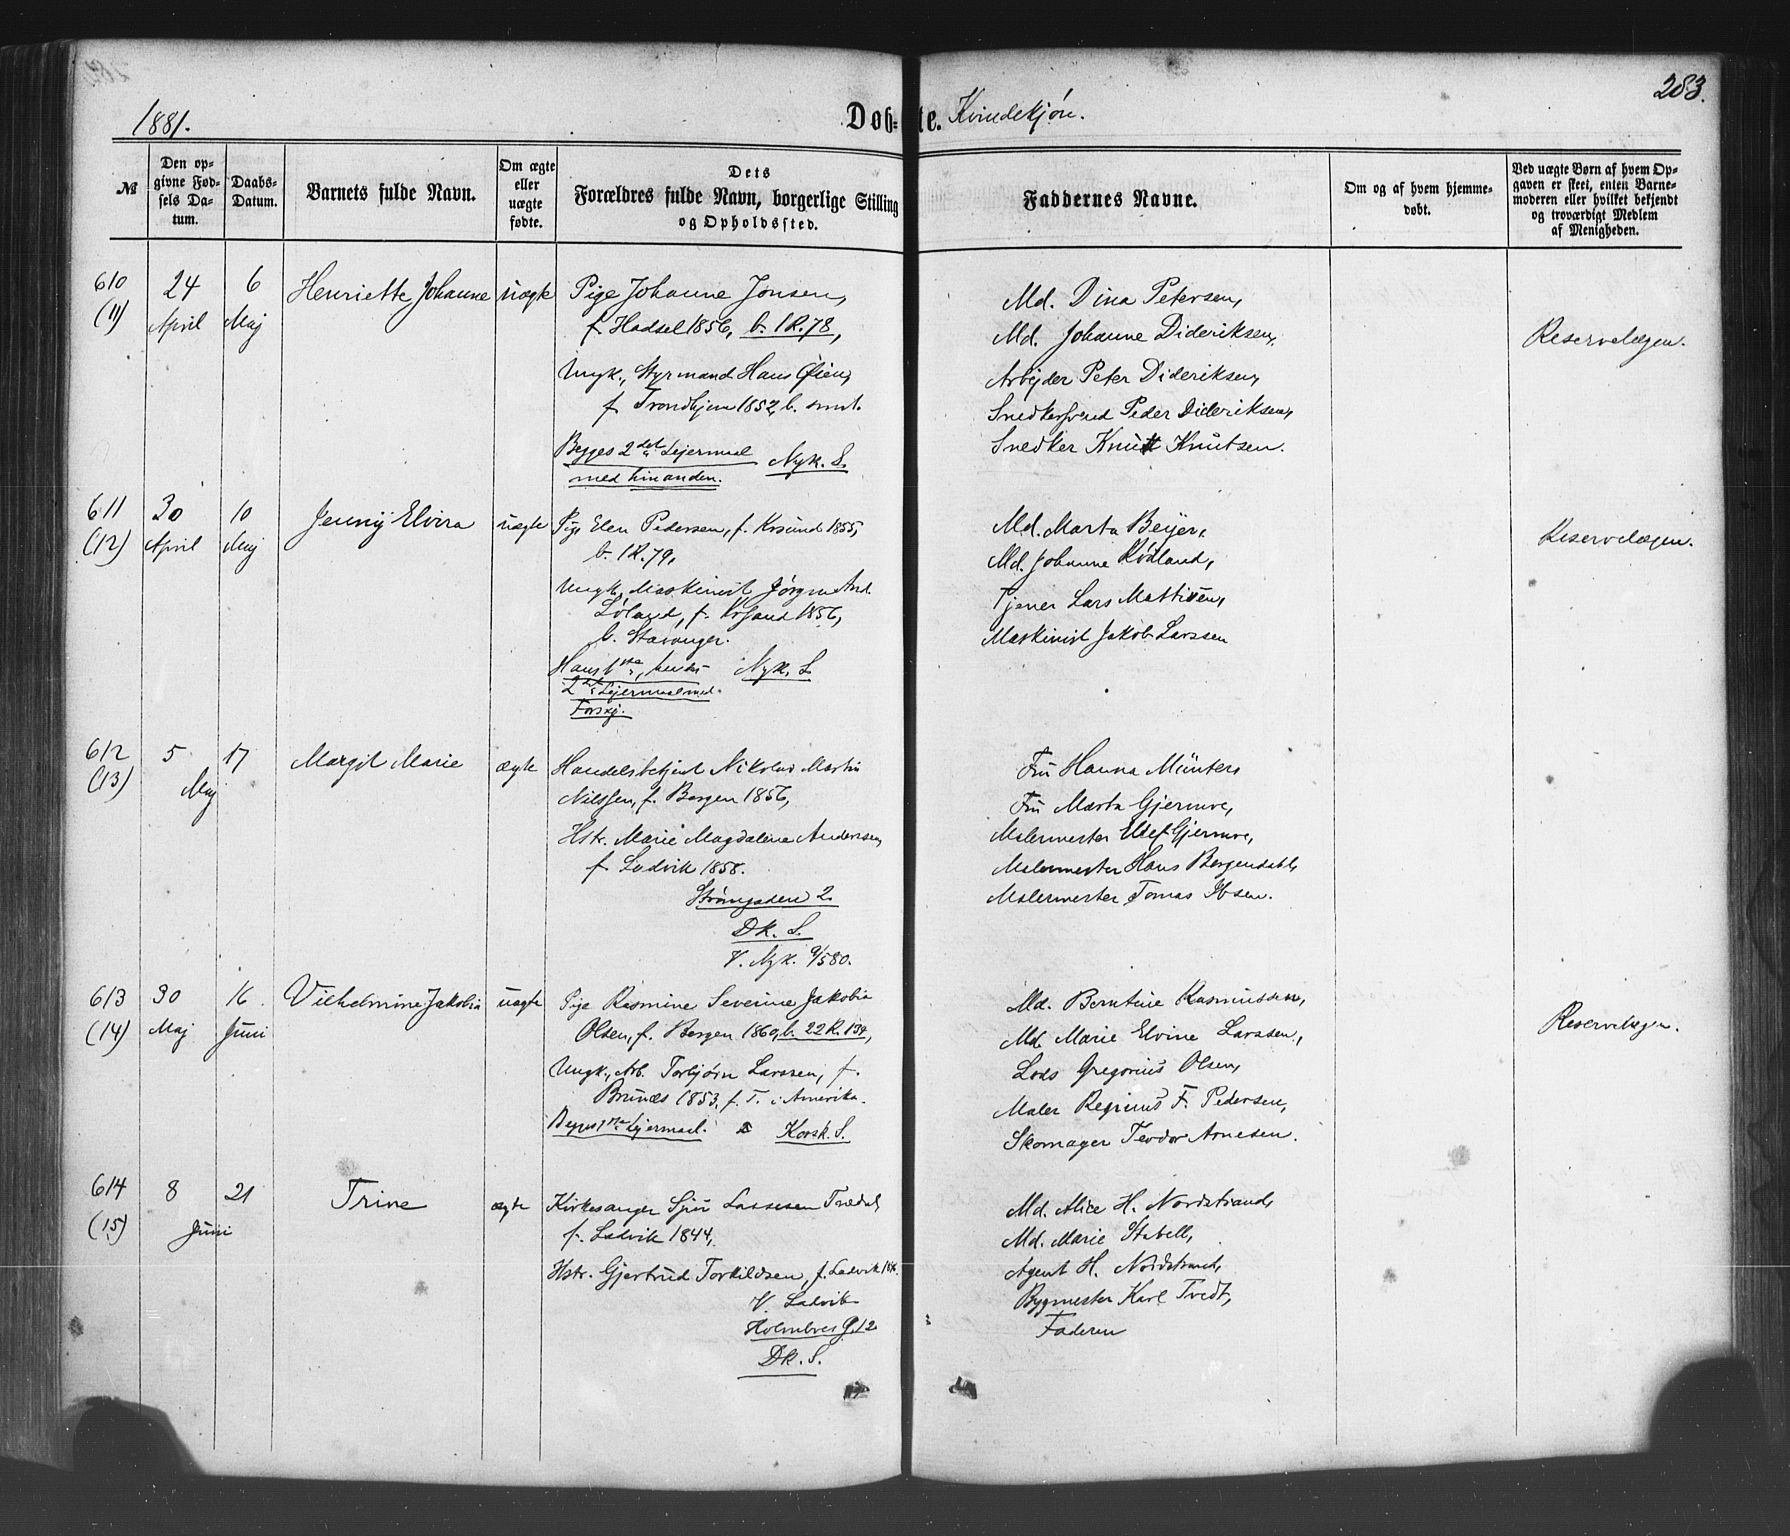 1881.
Døb-te. Kvindekjøn.
283.
№
Den op-
givne Fød-
sels Da-
tum.
Daabs-
Datum.
Barnets fulde Navn.
Om ægte
eller
uægte
fødte.
Dets
Forældres fulde Navn, borgerlige Stilling
og Opholdssted.
Faddernes Navne.
Om og af hvem hjemme-
døbt.
Ved uægte Børn af hvem Op-
gaven er skeet, enten Barne-
moderen eller hvilket bekjendt
og troværdigt Medlem
af Menigheden.
610
(11)
24
April
6
Maj
Henriette Johanne
uægte
Pige Johanne Jonsen,
f. Hadsel 1856, b. 1R.78,
Ungk., Styrmand Hans Øien,
f. Trondhjem 1852, b. smst.
Begges 2det Lejermaal
med hinanden.
Nyk. S.
Md. Dina Petersen,
Md. Johanne Dideriksen,
Arbejder Peter Dideriksen,
Snedkersvend Peder Dideriksen,
Snedker Knut Knutsen.
Reservelægen.
611
(12)
30
April
10
Maj
Jenny Elvira
uægte
Pige Elen Pedersen, f. Krsund 1855,
b. 1R.79,
Ungk. Maskinist Jørgen And.
Løland, f. 1856,
b. Stavanger.
Hans 1ste, hendes
2det Lejermaal med
Forskj.
Nyk. S.
Md. Marta Beyer,
Md. Johanne Rødland,
Tjener Lars Mattisen,
Maskinist Jakob Larssen
Reservelægen.
612
(13)
5
Maj
17
Margit Marie
ægte
Handelsbetjent Nikolai Martin
Nilssen, f. Bergen 1856,
Hstr. Marie Magdalene Andersen,
f. Ladvik 1858.
Strømgaden 2.
Dk. S.
V. Nyk. 9/5 80.
Fru Hanna Münter,
Fru Marta Gjermoe,
Malermester Gjermoe,
Malermester Hans Bergendahl,
Malermester Tomas Ibsen.
613
(14)
30
Maj
16
Juni
Vilhelmine Jakobia
uægte
Pige Rasmine Severine Jakobia
Olsen, f. Bergen 1860, b. 22R.154,
Ungk., Arb. Torbjørn Larssen, f.
Brunæs 1853, f. T. i Amerika.
Begges 1ste Lejermaal.
Korsk. S.
Md. Berntine Rasmussen,
Md. Marie Elvine Larssen,
Lods Gregorius Olsen,
Maler Reginus F. Pedersen,
Skomager Teodor Arnesen.
Reservelægen.
614
(15)
8
Juni
21
Trine
ægte
Kirkesanger Sjur Lassesen Trædal,
f. Ladvik 1844,
Hstr. Gjertrud Torkildsen, f. Ladvik
V. Ladvik
Holmboes G. 12
Dk. S.
Md. Alice H. Nordstrand,
Md. Marie Stabell,
Agent H. Nordstrand,
Bygmester Karl Tvedt,
Faderen